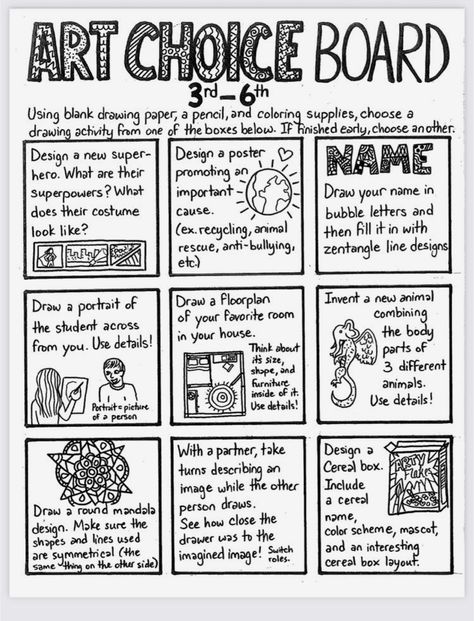 ART CHOICE BOARD
3rd-6th
Using blank drawing paper, a pencil, and coloring supplies, choose a
drawing activity from one of the boxes below. If finished early, choose another.
Design a new super-
hero. What are their
superpowers? What
does their costume
look like?
Design a poster
promoting an
important
cause.
(ex. recycling, animal
rescue, anti-bullying,
etc.)
NAME
Draw your name in
bubble letters and
then fill it in with
zentangle line designs
Draw a portrait of
the student across
from you. Use details!
Portrait = picture
of a person
Draw a floorplan
of your favorite room
in your house.
Think about
its size,
shape, and
furniture
inside of it.
Use details!
Invent a new animal
combining
the body
parts of
3 different
animals.
Use details!
Draw a round mandala
design. Make sure the
shapes and lines used
are symmetrical (the
same thing on the other side)
With a partner, take
turns describing an
image while the other
person draws.
See how close the
drawer was to the
imagined image! Switch
roles.
Design a
Cereal box.
Include
a cereal
name,
color scheme, mascot,
and an interesting
cereal box layout.